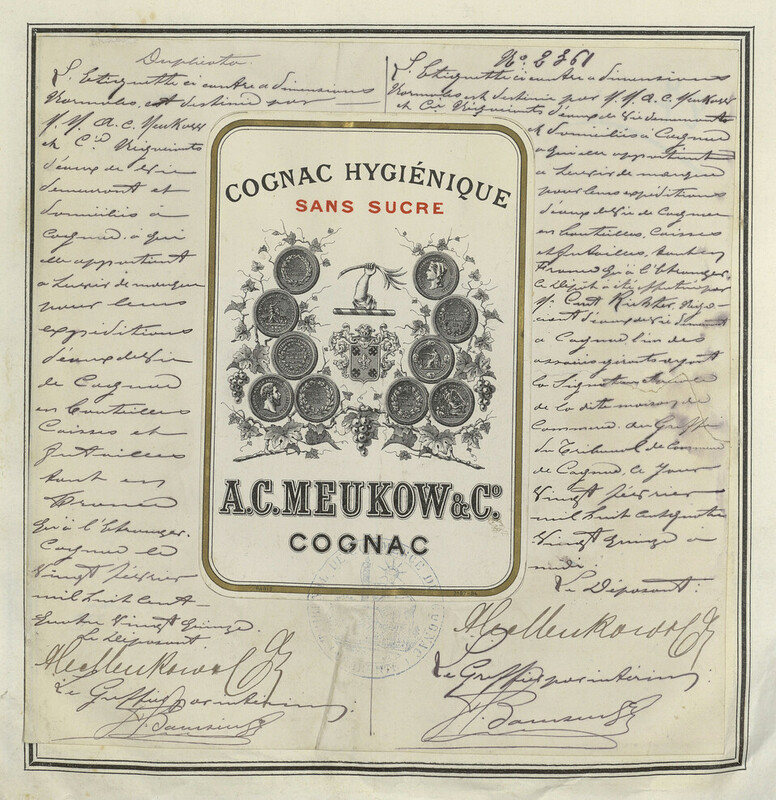 Duplicata.
L'Etiquette ci contre a dimensions
Normales est destinée par
M.M. A.C. Meukow
et Cie Négociants
d'eaux de Vie
demeurant et
domiciliés à
Cognac à qui
elle appartient
a servir de marque
pour leurs
expéditions
d'eaux de Vie
de Cognac
en bouteilles
Caisses et
futailles
tant en
France
qu'à l'Etranger.
Cognac le
Vingt février
mil huit cent
quatre Vingt quinze.
Le Déposant
A.C. Meukow & Co
Le Greffier par intérim
No. 2361
L'Etiquette ci contre a dimensions
Normales est destinée par M.M. A.C. Meukow
et Cie Négociants d'eaux de Vie demeurant
et domiciliés à Cognac
a qui elle appartient
a servir de marque
pour leurs expéditions
d'eaux de Vie de Cognac
en bouteilles, Caisses
et futailles, tant en
France qu'à l'Etranger.
Ce Dépôt a été effectué par
M. Richter, Négo-
ciant d'eaux de Vie demeurant
a Cognac l'un des
associés gérants ayant
la Signature Sociale
de la dite maison de
Commerce. au Greffe
du Tribunal de Commerce
de Cognac, le jour
Vingt février
mil huit cent quatre
Vingt quinze à
midi.
Le Déposant:
A.C. Meukow & Co
Le Greffier par intérim
COGNAC HYGIÉNIQUE
SANS SUCRE
A.C. MEUKOW & Co.
COGNAC
PARIS